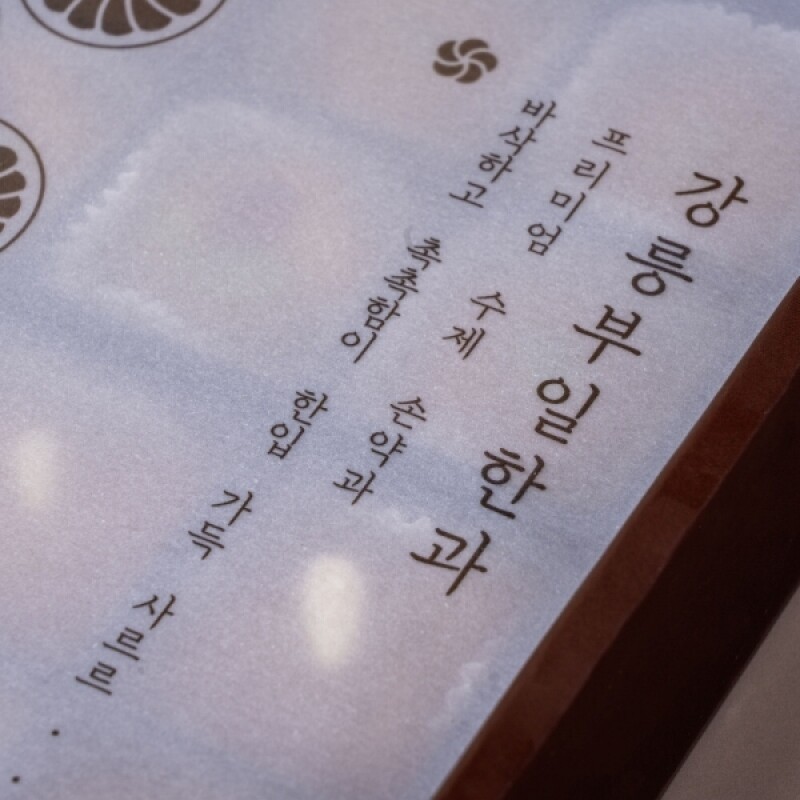 강릉부일한과
프리미엄 수제 손약과
바삭하고 촉촉함이 한입 가득 사르르 . .